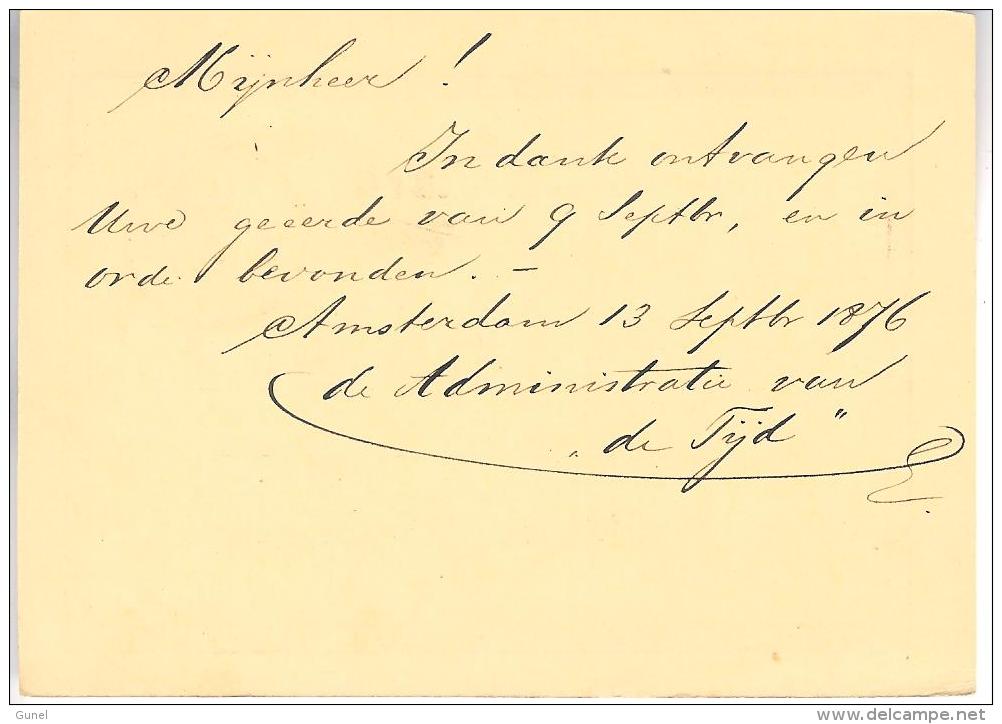 Mijnheer !
In dank ontvangen
Uwe geëerde van 9 Septbr, en in
orde bevonden. –
Amsterdam 13 Septbr 1876
de Administratie van
„de Tijd"
Gunel
delcampe.net